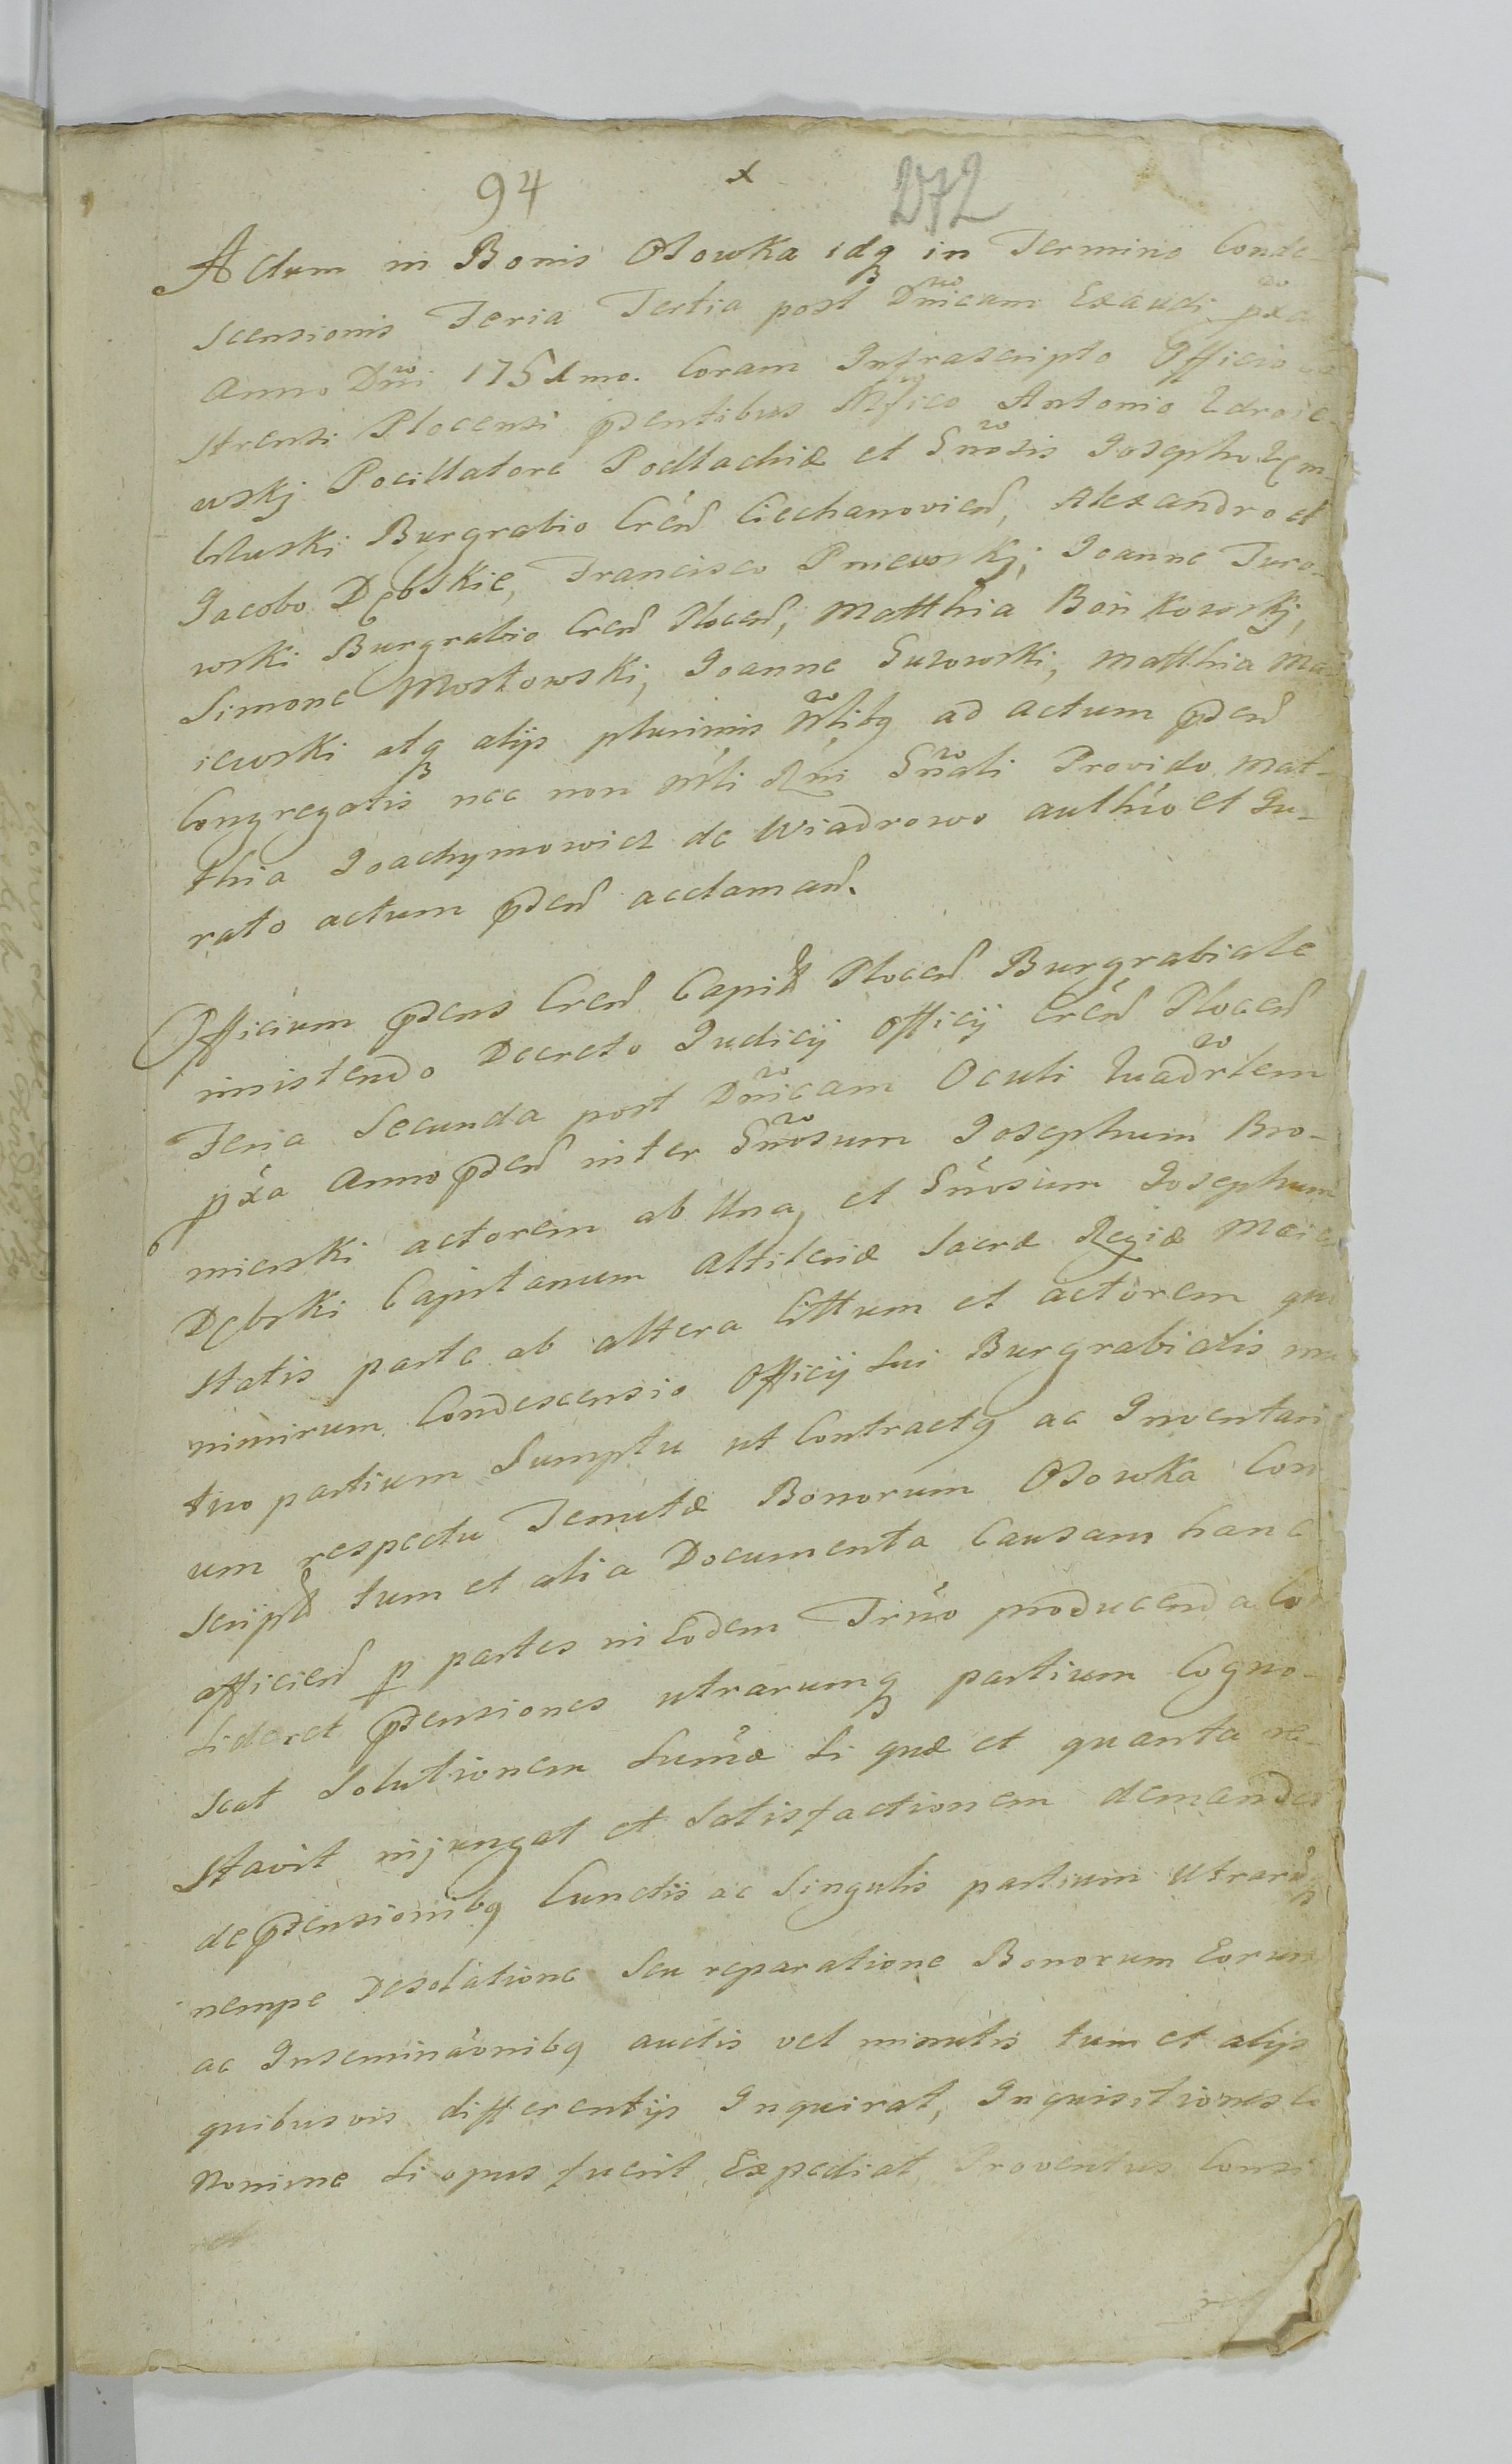 94 x 272
Actum in Bonis Osowka idq in Termino Conde-
scensionis Feria Tertia post Dnicam Exaudi pxa
Anno Dni 1751mo. Coram Infrascripto Officio
strensi Plocensi pñtibus Mfico Antonio Zdroie-
wskj Pocillatore Podlachiæ et Gnosis Josepho Zem-
bluski Burgrabio Cren Ciechanovien, Alexandro et
Jacobo Dębskie, Francisco Pniewskj, Joanne Turo-
wski Burgrabio Cren Plocen, Matthia Bońkowskj,
Simone Mostowski, Joanne Gurowski, Matthia Ma
iewski atq alijs plurimis Nlibq ad actum pñen
Congregatis nec non Mli Rni Gnali Provido Mat-
thia Joachymowicz de Wiadrowo authõ et Ju-
rato actum pñen acclaman.
Officium pñens Cren Capit Plocen Burgrabiale
inistendo Decreto Judicij Officij Cren Plocen
Feria Secunda post Dnicam Oculi Quadrlem
pxa Anno pñen inter Gnosum Josephum Bro-
mierski actorem ab Una, et Gnosum Josephum
Dębski Capitanum Altileriæ Sacræ Regiæ Maie
statis parte ab altera Cittum et actorem quo
nimirum Condescensio Officij sui Burgrabialis mu
tuo partium Sumptu ut Contractq ac Inventari
um respectu Tenutæ Bonorum Osowka Con
script tum et alia Documenta Causam hanc
afficien p partes in Eodem Trño producenda Con
sideret pñensiones utrarumq partium Cogno-
scat Solutionem Sumæ si quæ et quanta re-
stavit injungat et Satisfactionem demandet
de pñensionibq Cunctis ac Singulis partium utrarumq
nempe Desolatione seu reparatione Bonorum Eorum
ac Inseminaõnibq auctis vel minutis tum et alijs
quibusvis differentijs Inquirat, Inquisitiones
Nomine si opus fuerit Expediat, Proventus Consi